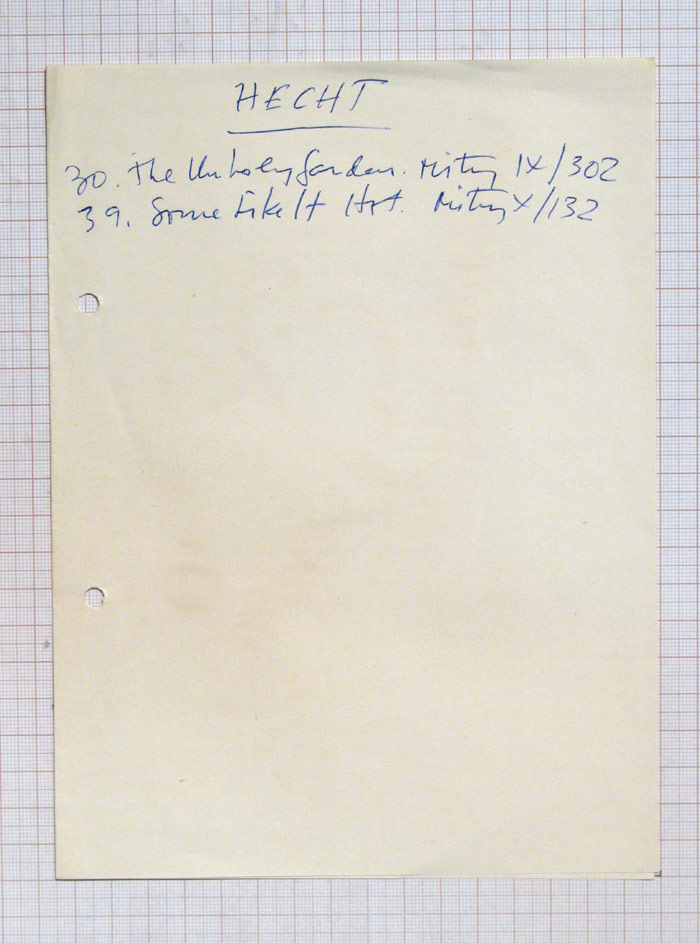 HECHT
30. The Unholy Garden. Mitry IX/302
39. Some Like It Hot. Mitry X/132